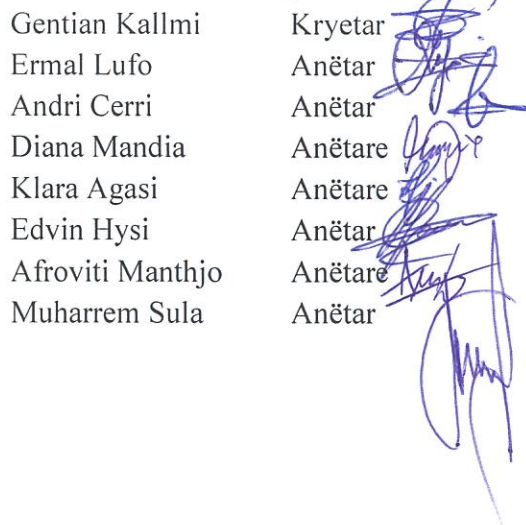 Gentian Kallmi Kryetar
Ermal Lufo Anëtar
Andri Cerri Anëtar
Diana Mandia Anëtare
Klara Agasi Anëtare
Edvin Hysi Anëtar
Afroviti Manthjo Anëtare
Muharrem Sula Anëtar